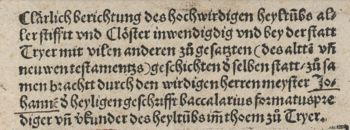 Clārlich berichtung des hochwirdigen heyltūbs al⸗
ler stifft vnd Clöster inwendigdig vnd bey der statt
Tryer mit vilen anderen zů gesatzten (des alttē vn̄
neuwen testamentzs) geschichten d selben statt/ zů sa
men bracht durch den wirdigen herren meyster Jo⸗
hannē d heyligen geschrifft baccalarius formatus pre
diger vn̄ v̓kunder des heyltūbs im̄ thoem zů Tryer.